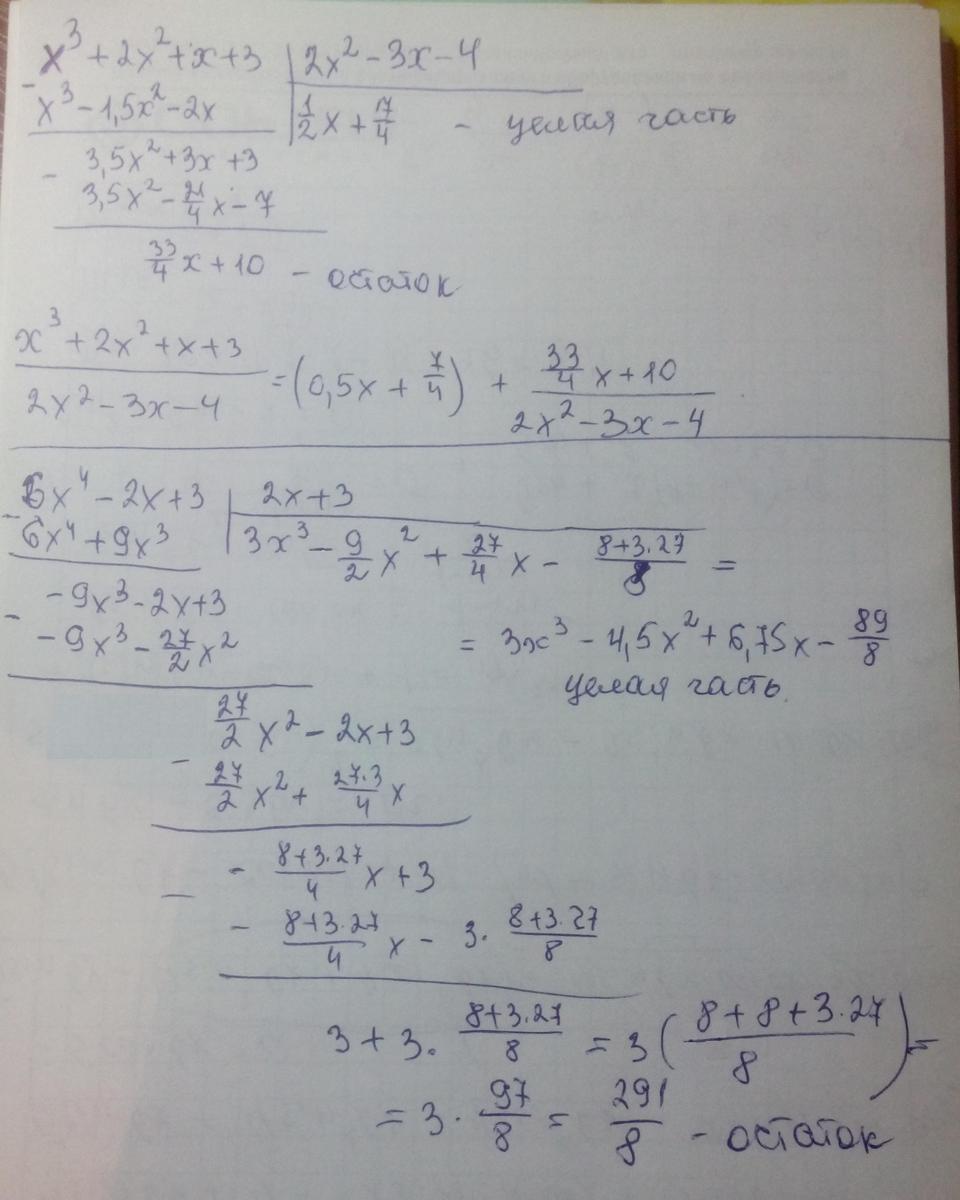 x³ + 2x² + x + 3 | 2x² - 3x - 4
- x³ - 1,5x² - 2x | 1/2 x + 7/4 - целая часть
3,5x² + 3x + 3
- 3,5x² - 21/4 x - 7
33/4 x + 10 - остаток
(x³ + 2x² + x + 3)/(2x² - 3x - 4) = (0,5x + 7/4) + (33/4 x + 10)/(2x² - 3x - 4)
6x⁴ - 2x + 3 | 2x + 3
- 6x⁴ + 9x³ | 3x³ - 9/2 x² + 27/4 x - (8+3·27)/8 =
- 9x³ - 2x + 3
- - 9x³ - 27/2 x² = 3x³ - 4,5x² + 6,75x - 89/8
целая часть.
27/2 x² - 2x + 3
- 27/2 x² + 27·3/4 x
- (8+3·27)/4 x + 3
- - (8+3·27)/4 x - 3· (8+3·27)/8
3 + 3· (8+3·27)/8 = 3 ((8+8+3·27)/8) =
= 3 · 97/8 = 291/8 - остаток